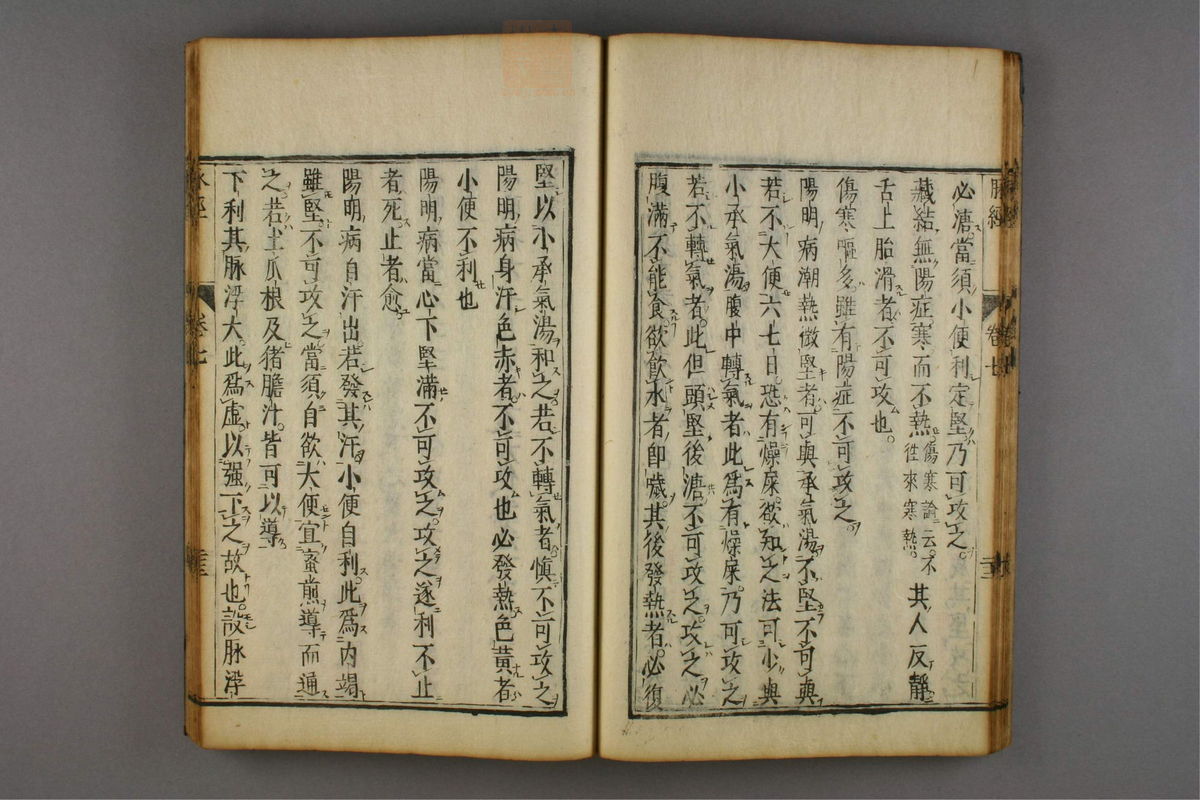 必溏當須小便利定堅乃可攻之
藏結無陽症寒而不熱傷寒論云不往來寒熱其人反靜
舌上胎滑者不可攻也
傷寒嘔多雖有陽症不可攻之
陽明病潮熱微堅者可與承氣湯不堅不可與
若不大便六七日恐有燥屎欲知之法可少與
小承氣湯腹中轉氣者此爲有燥屎乃可攻之
若不轉氣者此但頭堅後溏不可攻之攻之必
腹滿不能食欲飲水者即噦其後發熱者必復
堅以小承氣湯和之若不轉氣者慎不可攻之
陽明病身汗色赤者不可攻也必發熱色黃者
小便不利也
陽明病當心下堅滿不可攻之攻之遂利不止
者死止者愈
陽明病自汗出若發其汗小便自利此爲内竭
雖堅不可攻之當須自欲大便宜蜜煎導而通
之若土瓜根及猪膽汁皆可以導
下利其脉浮大此爲虛以强下之故也設脉浮
脉經 卷七